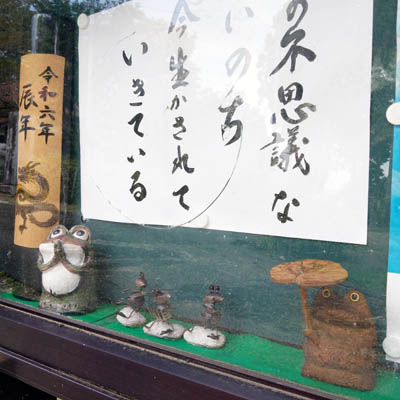 の不思議な
いのち
今生かされて
いきている
令和六年
辰年